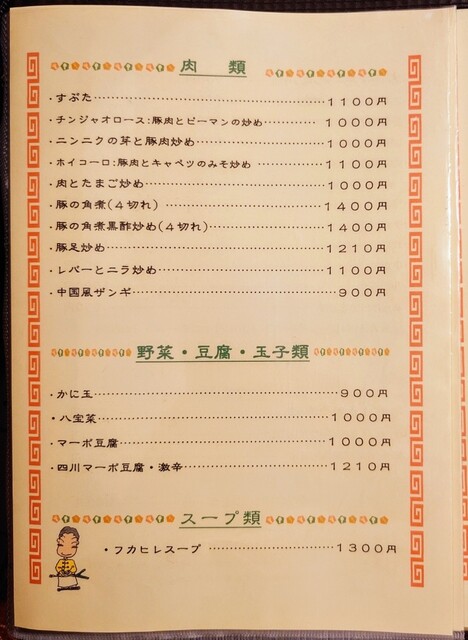 肉　類
・すぶた……………………………1100円
・チンジャオロース:豚肉とピーマンの炒め…………1000円
・ニンニクの芽と豚肉炒め……………………1000円
・ホイコーロ:豚肉とキャベツのみそ炒め…………1100円
・肉とたまご炒め……………………1000円
・豚の角煮(4切れ)……………………1400円
・豚の角煮黒酢炒め(4切れ)………………1400円
・豚足炒め……………………………1210円
・レバーとニラ炒め……………………1100円
・中国風ザンギ……………………900円
野菜・豆腐・玉子類
・かに玉……………………………900円
・八宝菜……………………………1000円
・マーボ豆腐…………………………1000円
・四川マーボ豆腐・激辛…………………1210円
スープ類
・フカヒレスープ………………1300円